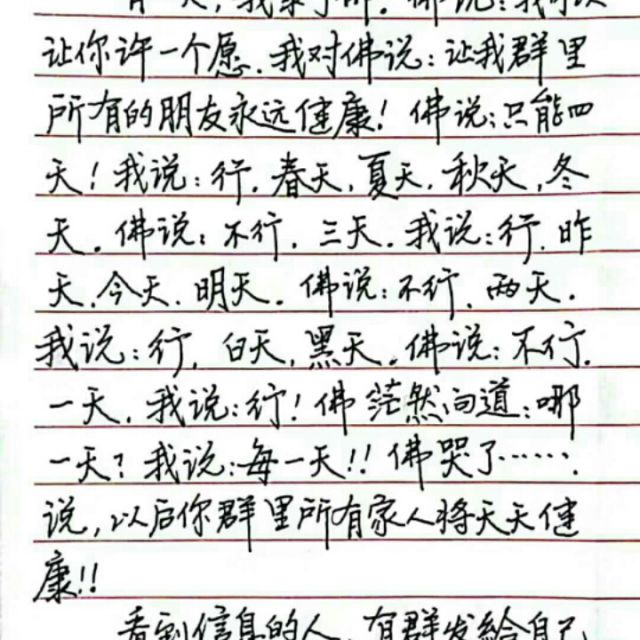 有一天，我拿了佛．佛说：我可以
让你许一个愿．我对佛说：让我群里
所有的朋友永远健康！佛说：只能四
天！我说：行．春天，夏天，秋天，冬
天．佛说：不行，三天．我说：行．昨
天．今天．明天．佛说：不行．两天．
我说：行，白天，黑天．佛说：不行．
一天．我说：行！佛茫然问道：哪
一天？我说：每一天!!佛哭了……．
说，以后你群里所有家人将天天健
康!!
看到信息的人，有群发给自己